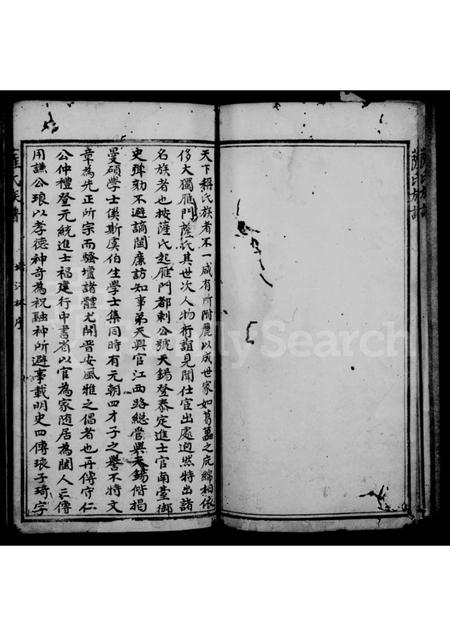 天下稱氏族者不一咸有所附麗以成世家如葛藟之庇綿相條
侈大獨雁門薩氏其世次人物行誼見聞仕宦出處迥然特出諸
名族者也按薩氏起雁門都剌公號天錫登泰定進士官南臺御
史彈劾不避謫閩廉訪知事弟天與官江西路總管與天錫偕揭
曼碩學士傒斯虞伯生學士集同時有元朝四才子之譽不特文
章為光正所宗而騷壇諸體尤開晉安風雅之倡者也再傳守仁
公仲禮登元統進士福建行中書省以官為家随居為閩人三傳
用謙公琅以孝德神奇為祝融神所避事載明史四傳琅子琦字
薩氏族譜
林序
薩氏族譜
FamilySearch